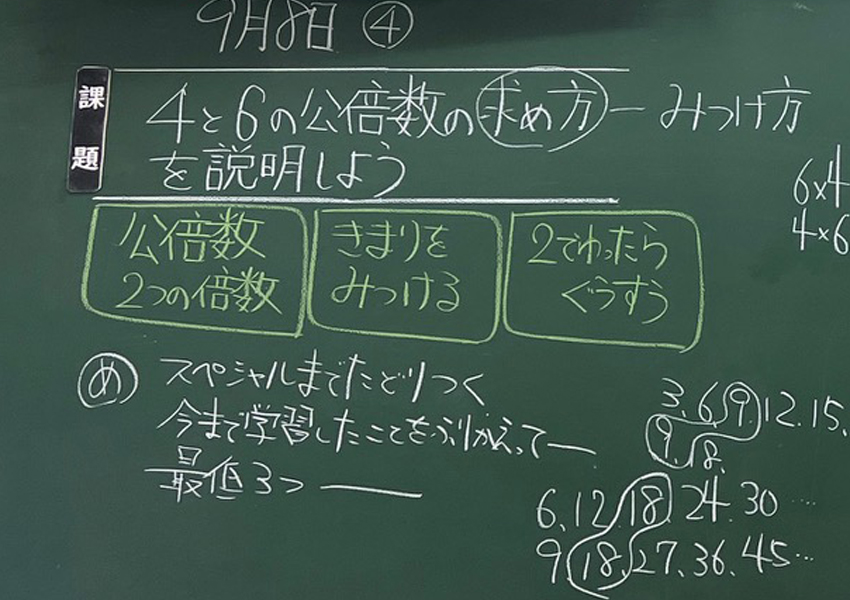 9月8日 ④
課題
4と6の公倍数の求め方ーみつけ方
を説明しよう
6×4
4×6
公倍数
2つの倍数
きまりを
みつける
2でわったら
ぐうすう
め スペシャルまでたどりつく
今まで学習したことをふりかえってー
最低3つ
3、6、9、12、15、
9、18、
6、12、18、24、30…
9、18、27、36、45…